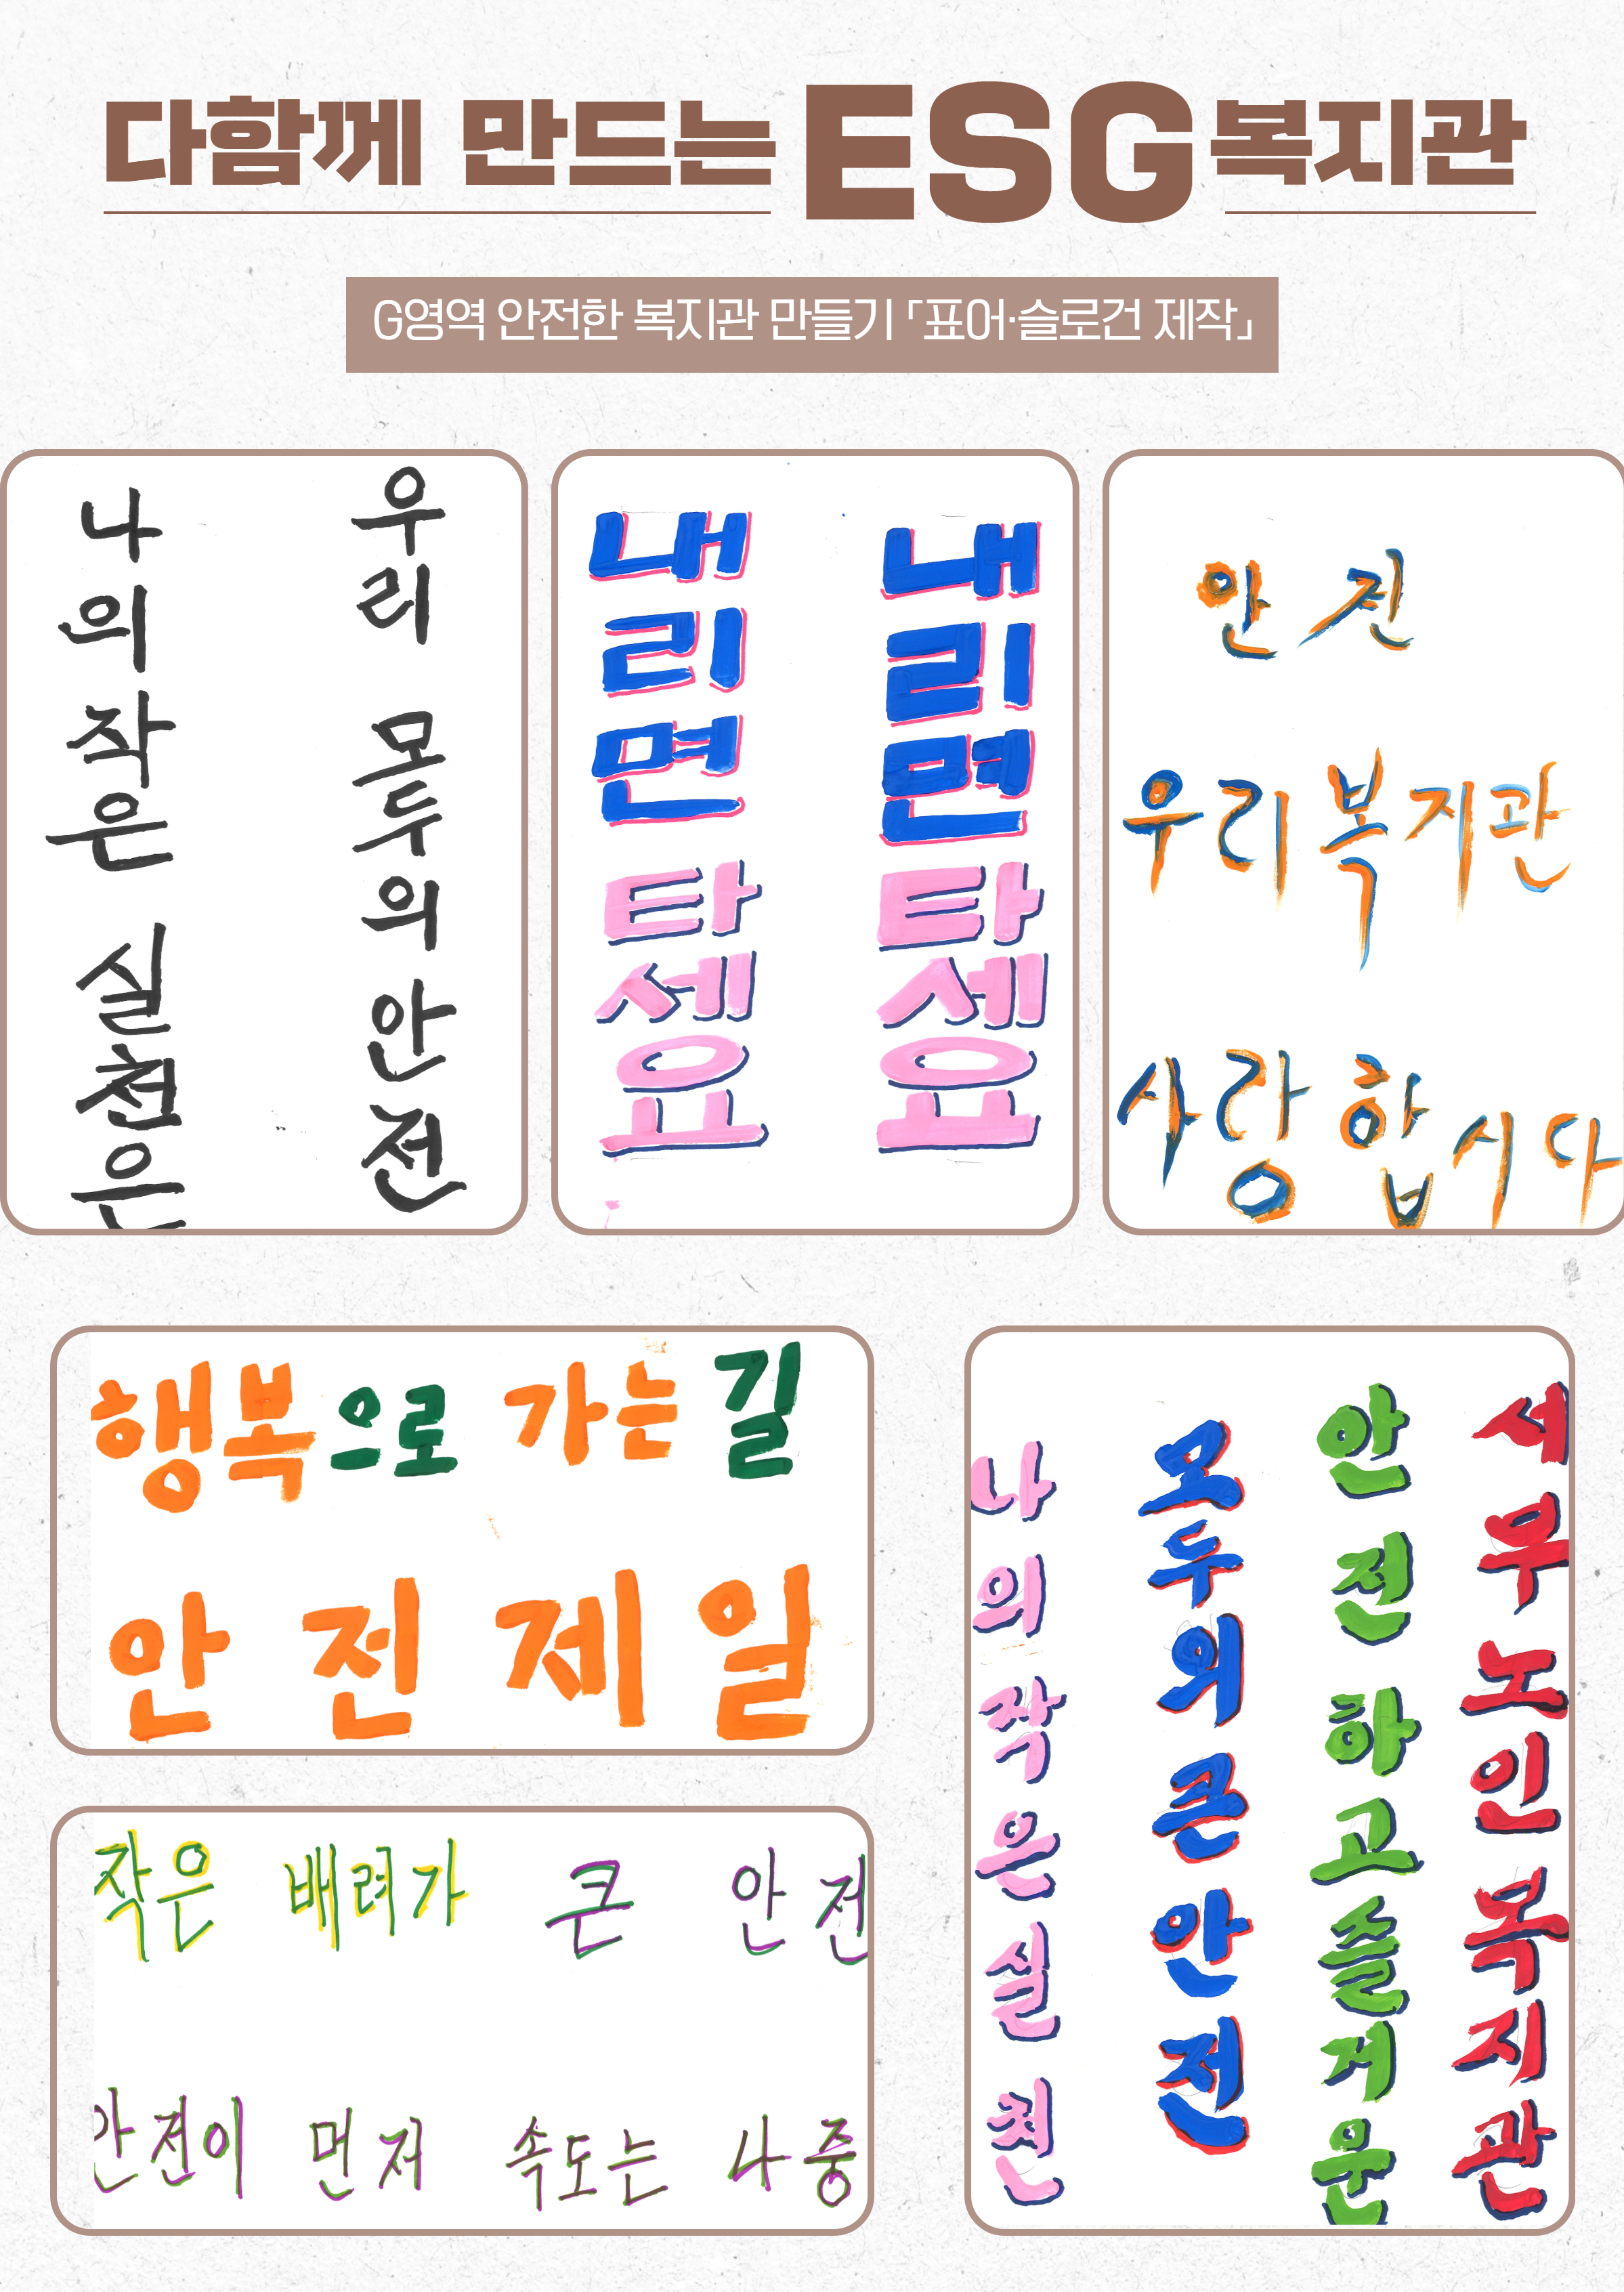 다함께 만드는 ESG 복지관
G영역 안전한 복지관 만들기 「표어·슬로건 제작」
나의 작은 실천은
우리 모두의 안전
내리면 타세요
내리면 타세요
안전
우리복지관
사랑합시다
행복으로 가는 길
안전제일
작은 배려가 큰 안전
안전이 먼저 속도는 나중
나의 작은 실천
모두의 큰 안전
안전하고 즐거운
서부노인복지관